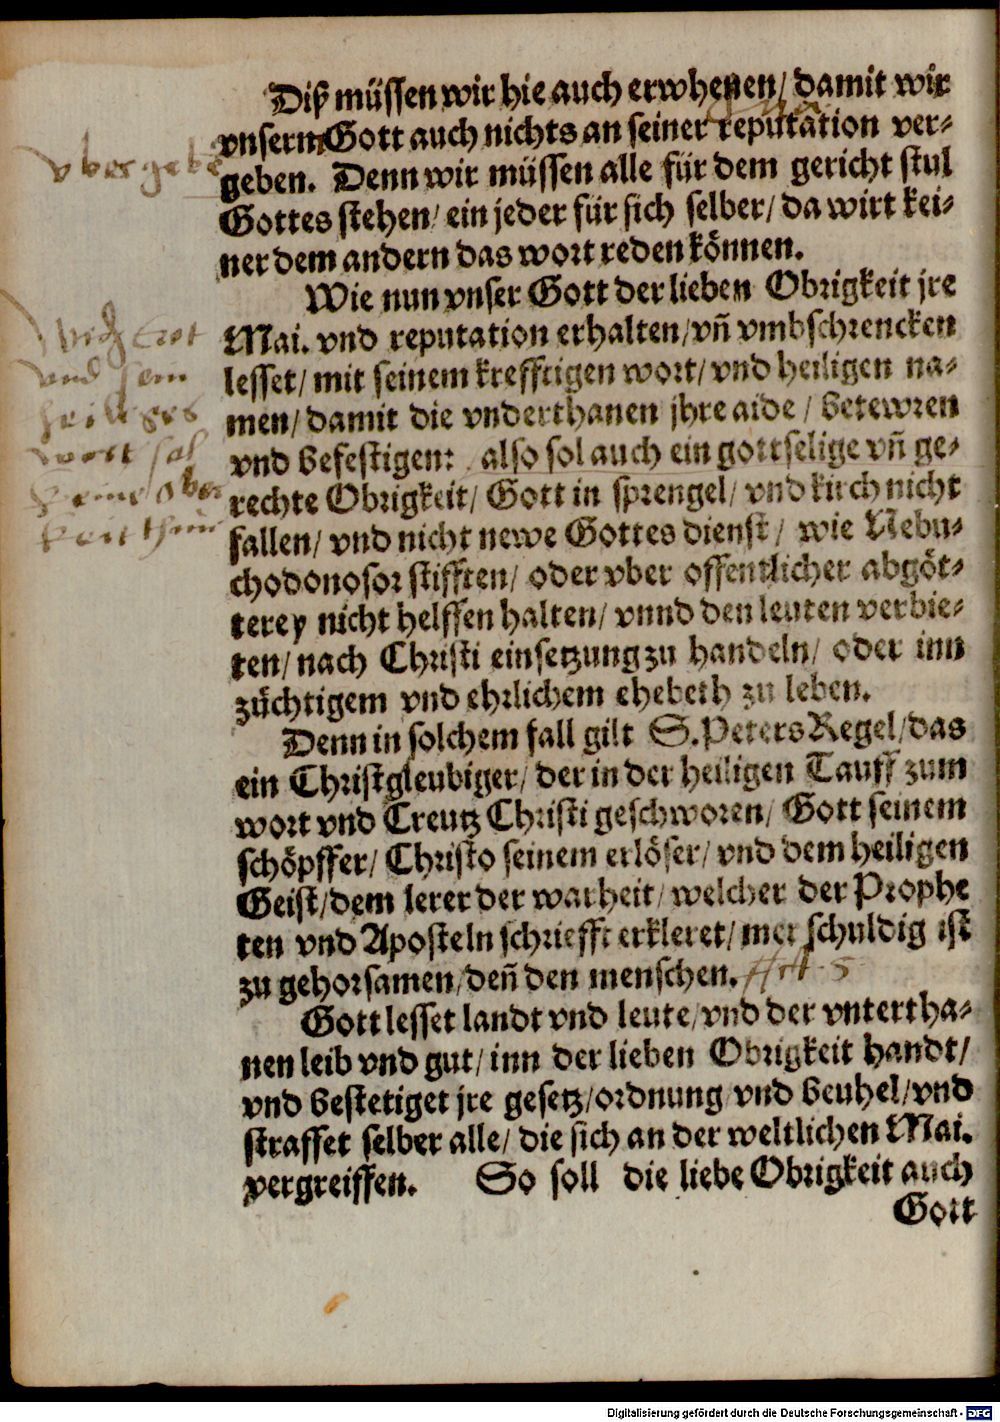 Diß müssen wir hie auch erwhenen/ damit wir
vnserm Gott auch nichts an seiner reputation ver-
vbergeb
geben. Denn wir müssen alle für dem gericht stul
Gottes stehen/ ein jeder für sich selber/ da wirt kei-
ner dem andern das wort reden können.
Wie nun vnser Gott der lieben Obrigkeit jre
Mai. vnd reputation erhalten/ vñ vmbschrencken
lesset/ mit seinem krefftigen wort/ vnd heiligen na-
men/ damit die vnderthanen jhre aide / betewren
vnd befestigen: also sol auch ein gottselige vñ ge-
rechte Obrigkeit/ Gott in sprengel/ vnd kirch nicht
fallen/ vnd nicht newe Gottes dienst/ wie Nebu-
chodonosor stifften/ oder vber offentlicher abgöt-
terey nicht helffen halten/ vnnd den leuten verbie-
ten/ nach Christi einsetzung zu handeln/ oder inn
züchtigem vnd ehrlichem ehebeth zu leben.
Got
vnd sein
heiliges
wort sol
keine ober
keit thun
Denn in solchem fall gilt S. Peters Regel/ das
ein Christgleubiger/ der in der heiligen Tauff zum
wort vnd Creutz Christi geschworen/ Gott seinem
schöpffer/ Christo seinem erlöser/ vnd dem heiligen
Geist/ dem lerer der warheit/ welcher der Prophe
ten vnd Aposteln schriefft erkleret/ mer schuldig ist
zu gehorsamen/ deñ den menschen. Act. 5
Gott lesset landt vnd leute/ vnd der vntertha-
nen leib vnd gut/ inn der lieben Obrigkeit handt/
vnd bestetiget jre gesetz/ ordnung vnd beuhel/ vnd
straffet selber alle/ die sich an der weltlichen Mai.
vergreiffen. So soll die liebe Obrigkeit auch
Gott
Digitalisierung gefördert durch die Deutsche Forschungsgemeinschaft - DFG